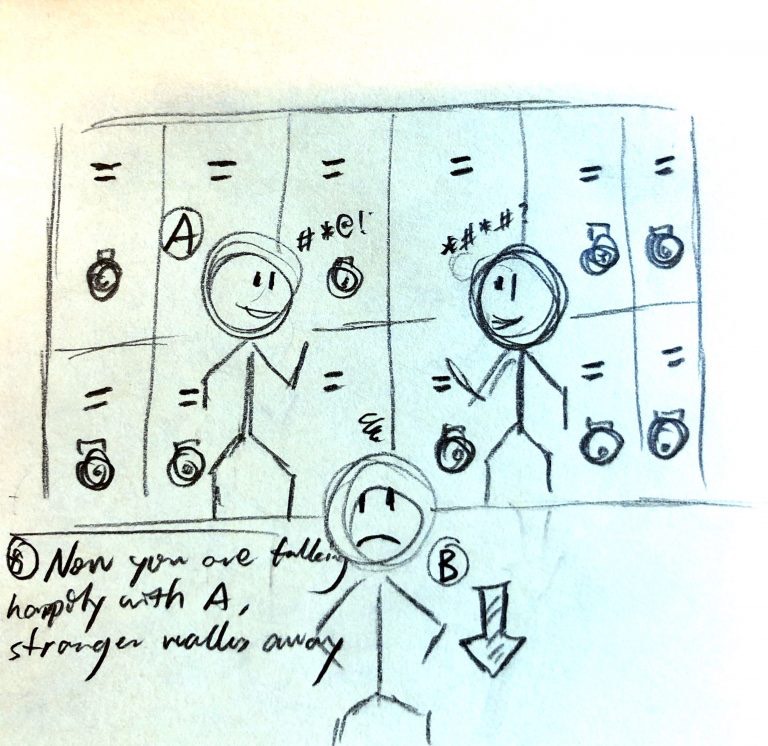 A
#*@!
*#*#?
B
⑧ Now you are talking
happily with A,
stranger walks away